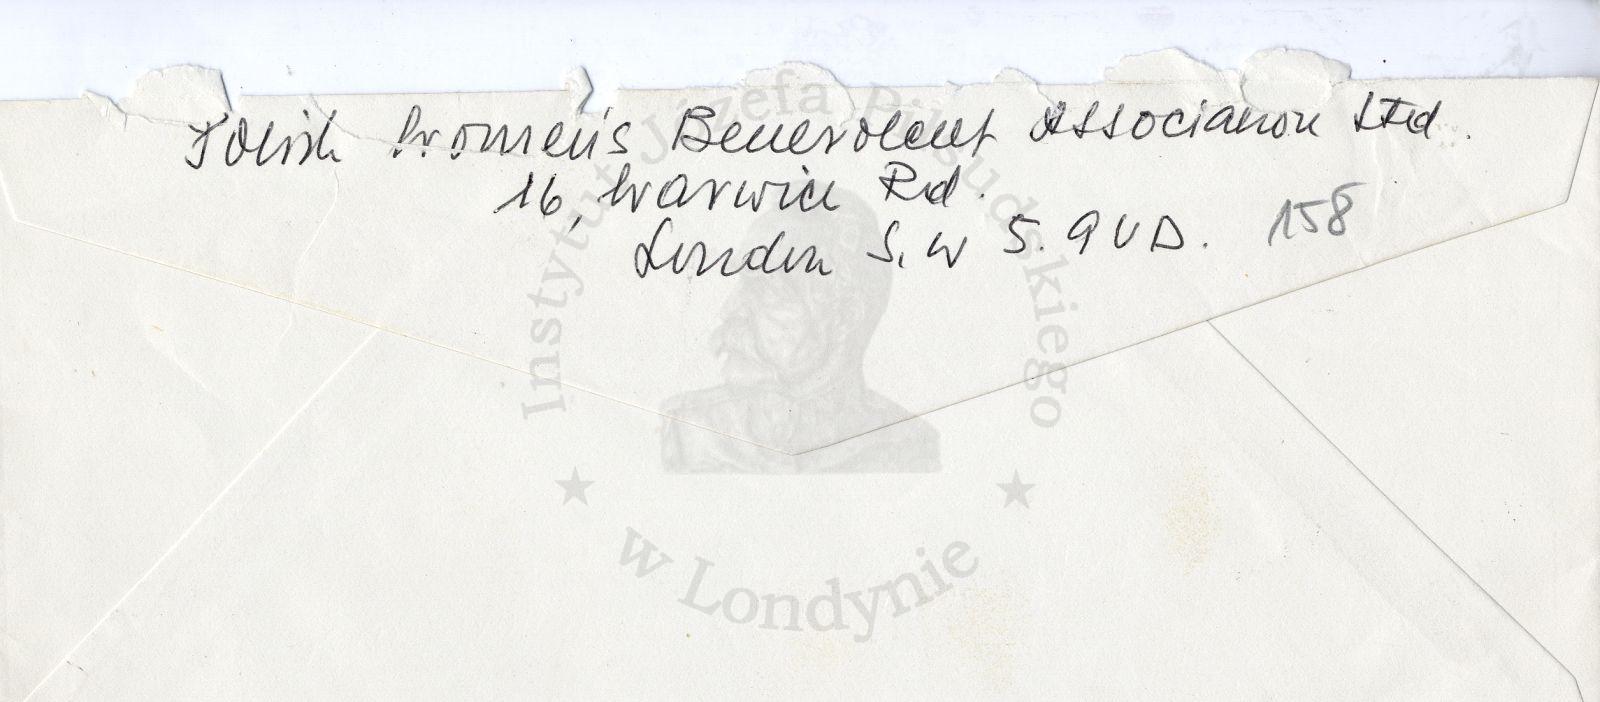 Polish Women's Benevolent Association Ltd.
16, Warwick Rd.
London S.W 5. 9UD.
158
Instytut Józefa Piłsudskiego
w Londynie